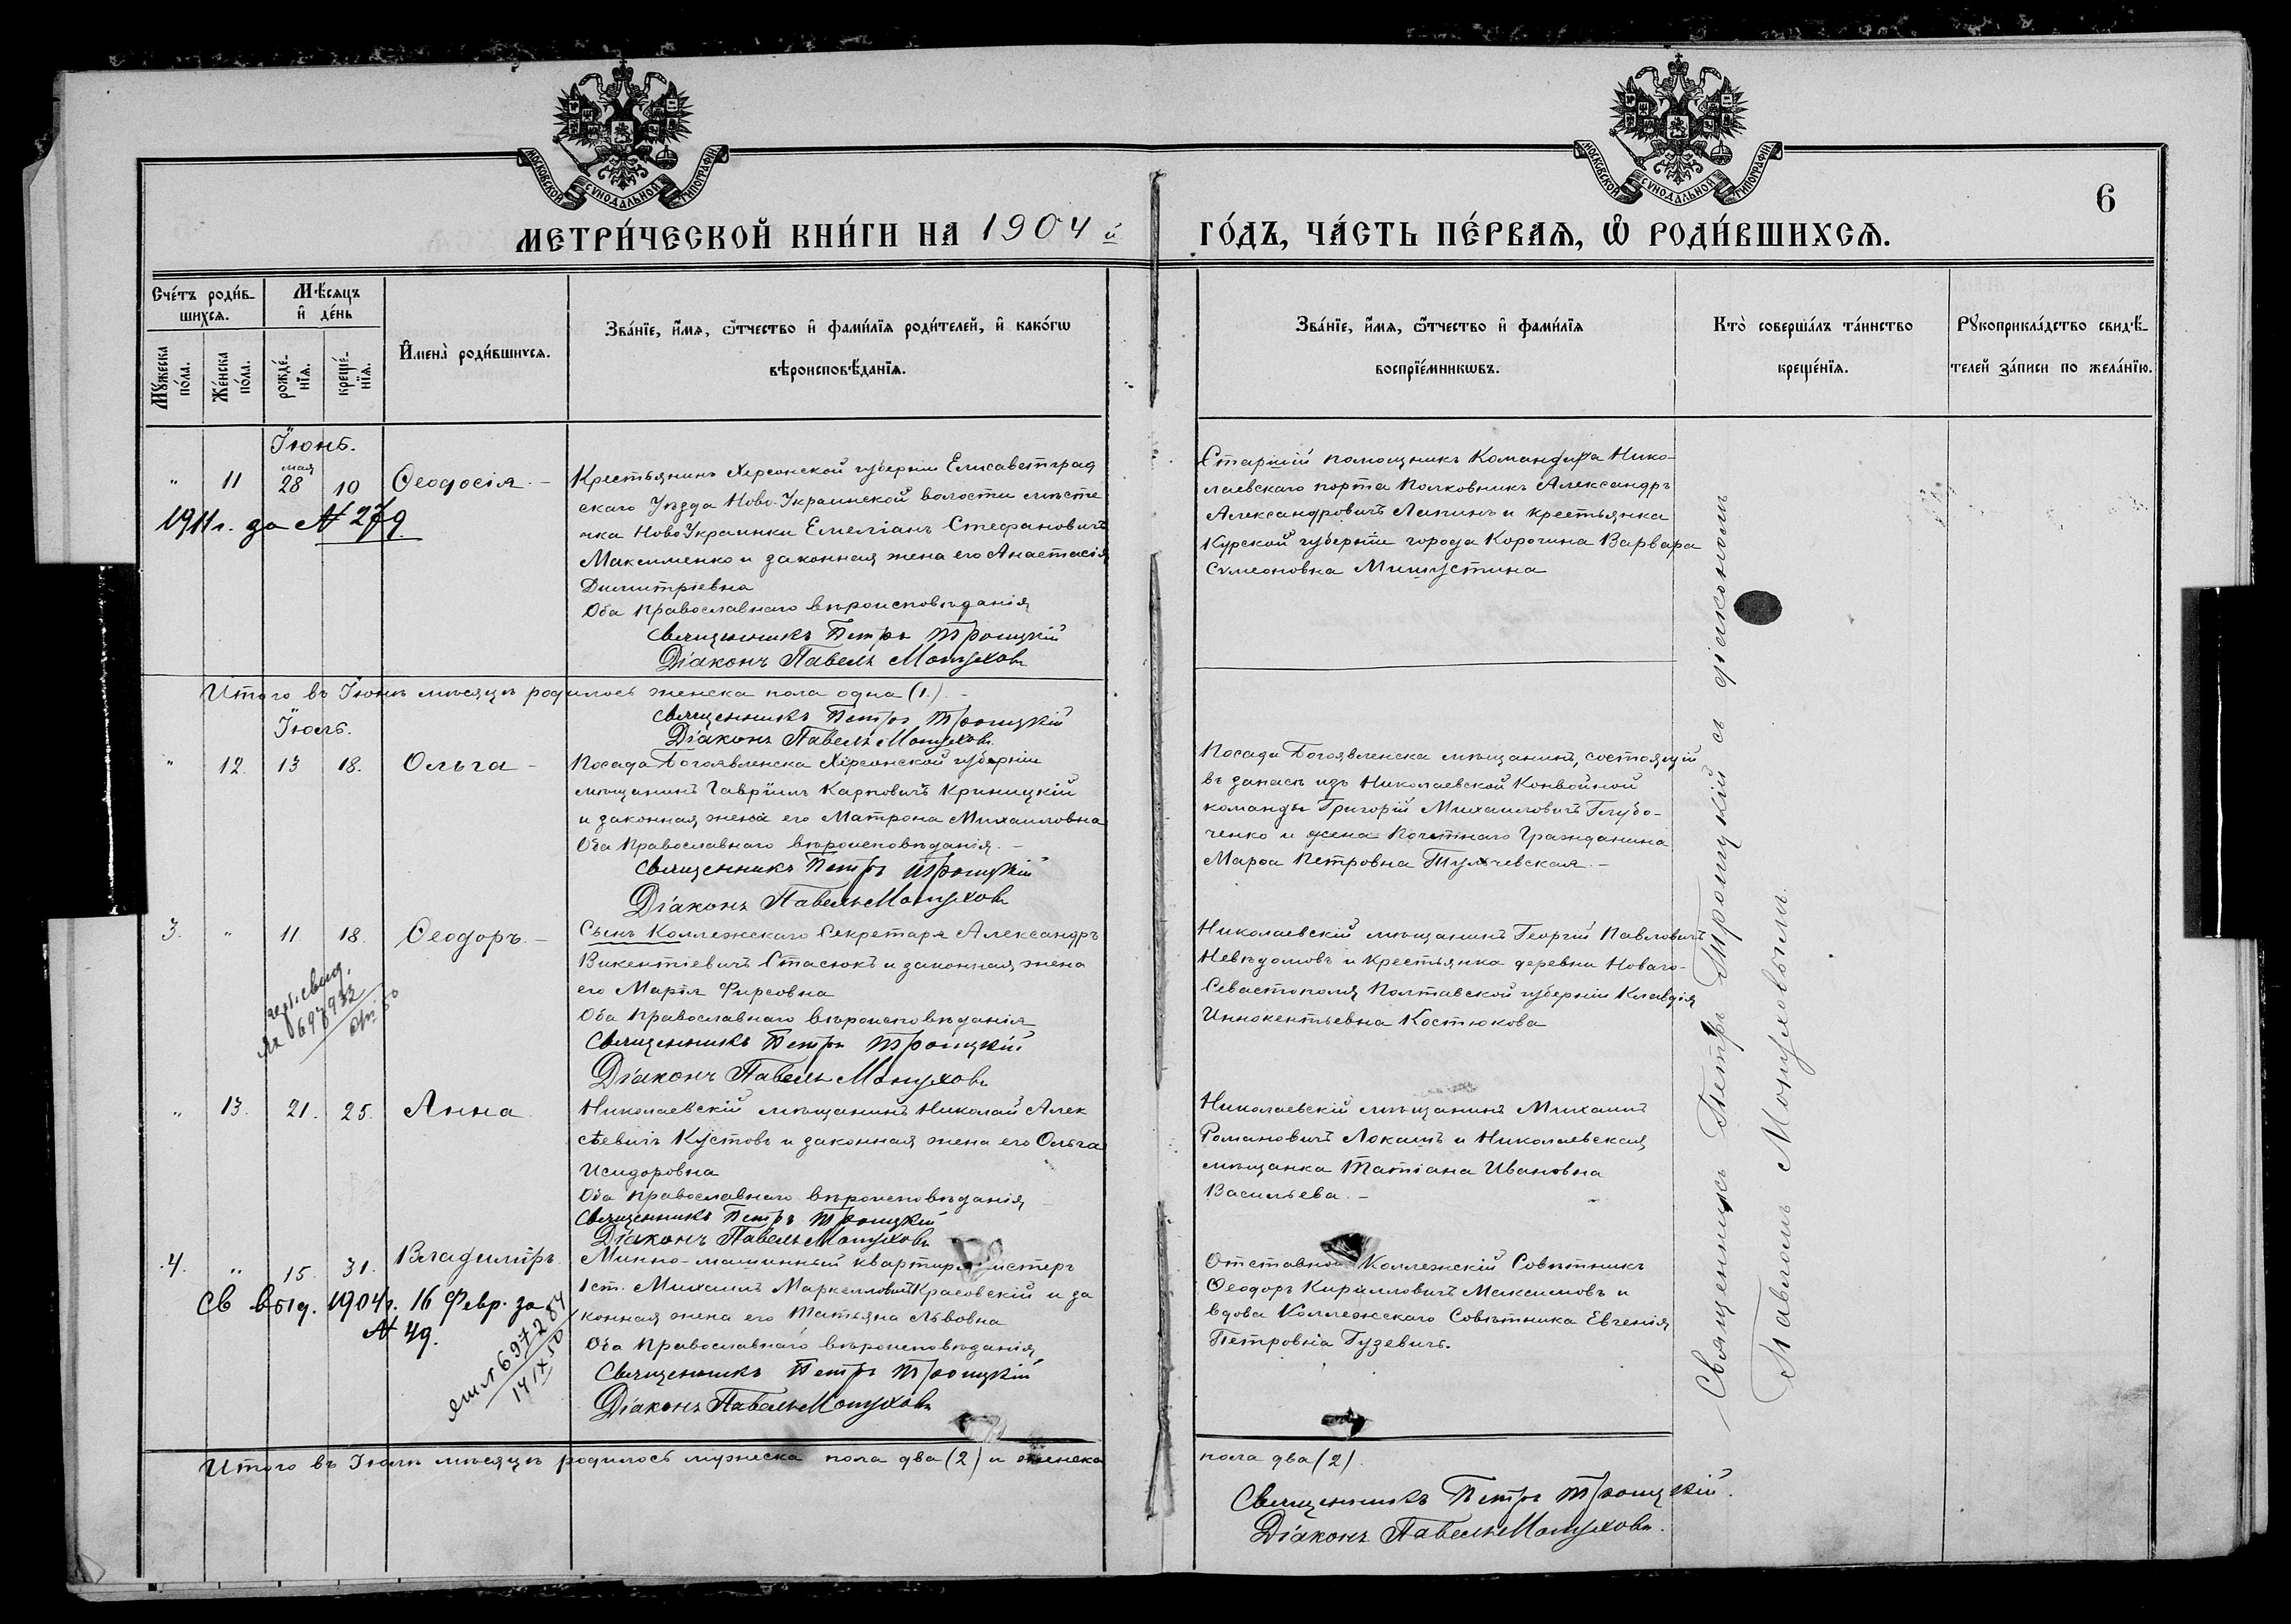 МОСКОВСКОЙ СѴНОДАЛЬНОЙ ТИПОГРАФІИ
МОСКОВСКОЙ СѴНОДАЛЬНОЙ ТИПОГРАФІИ
6
МЕТРИ́ЧЕСКОЙ КНИ́ГИ НА 1904й ГО́ДЪ, ЧА́СТЬ ПЕ́РВАѦ, Ѡ҆ РОДИ́ВШИХСѦ.
Сче́тъ роди́в-
шихсѧ.
Мѣ́сѧцъ
и҆ де́нь
Мꙋ́жеска
по́ла.
Же́нска
по́ла.
рожде́-
нїѧ.
креще́-
нїѧ.
И҆мена̀ роди́вшихсѧ.
Зва́нїе, и҆́мѧ, ѻ҆́тчество и҆ фами́лїѧ роди́телей, и҆ како́гѡ
вѣроисповѣ́данїѧ.
Зва́нїе, и҆́мѧ, ѻ҆́тчество и҆ фами́лїѧ
воспрїе́мникѡвъ.
Кто̀ соверша́лъ та́инство
креще́нїѧ.
Рꙋкоприкла́дство свидѣ́-
телей за́писи по жела́нїю.
Іюнь.
мая
" 11 28 10 Ѳеодосія. -
1911 г. за № 279
Крестьянинъ Херсонской губерніи Елисаветград
скаго Уѣзда Ново-Украинской волости мѣсте
чка Ново Украинки Емеліанъ Стефановичъ
Максименко и законная жена его Анастасія
Димитріевна
Оба Православнаго вѣроисповѣданія
Священникъ Петръ Троицкій
Діаконъ Павелъ Мопуховъ
Старшій помощникъ Командира Нико-
лаевскаго порта Полковникъ Александръ
Александровичъ Лапинъ и крестьянка
Курской губерніи города Корочина Варвара
Сѵмеоновна Мишустина
Итого въ Іюнѣ мѣсяцѣ родилось женска пола одна (1.) -
Священникъ Петръ Троицкій
Діаконъ Павелъ Мопуховъ
Іюль.
" 12. 13 18. Ольга -
Посада Богоявленска Херсонской губерніи
мѣщанинъ Гавріилъ Карповичъ Криницкій
и законная жена его Матрона Михаиловна
Оба Православнаго вѣроисповѣданія. -
Священникъ Петръ Троицкій
Діаконъ Павелъ Мопуховъ
Посада Богоявленска мѣщанинъ, состоящій
въ запасѣ изъ Николаевской Конвойной
команды Григорій Михаиловичъ Глубо-
ченко и жена Почетнаго Гражданина
Марѳа Петровна Тульчевская. -
3. " 11. 18. Ѳеодоръ. -
герб. свид.
№ 697932
Сынъ Коллежскаго Секретаря Александръ
Викентіевичъ Стасюкъ и законная жена
его Марія Фирсовна
Оба Православнаго вѣроисповѣданія
Священникъ Петръ Троицкій
Діаконъ Павелъ Мопуховъ
Николаевскій мѣщанинъ Георгій Павловичъ
Невѣдомовъ и крестьянка деревни Новаго-
Севастополя Полтавской губерніи Клавдія
Иннокентьевна Костюкова
" 13. 21. 25. Анна
Николаевскій мѣщанинъ Николай Алек
сѣевичъ Кустовъ и законная жена его Ольга
Исидоровна
Оба Православнаго вѣроисповѣданія
Священникъ Петръ Троицкій
Діаконъ Павелъ Мопуховъ
Николаевскій мѣщанинъ Михаилъ
Романовичъ Локашъ и Николаевская
мѣщанка Татіана Ивановна
Васильева. -
4. " 15. 31. Владиміръ.
св выд. 1904 г. 16 Февр. за
№ 49.
697284
14 IX 50
Минно-машинный квартирмистеръ
1 ст. Михаилъ Маркелловичъ Красовскій и за
конная жена его Татьяна Львовна
Оба Православнаго вѣроисповѣданія
Священникъ Петръ Троицкій
Діаконъ Павелъ Мопуховъ
Отставной Коллежскій Совѣтникъ
Ѳеодоръ Кирилловичъ Максимовъ и
вдова Коллежскаго Совѣтника Евгенія
Петровна Гузевичъ.
Священникъ Петръ Троицкій съ діакономъ
Павломъ Мопуховымъ.
Итого въ Іюлѣ мѣсяцѣ родилось мужеска пола два (2) и женска пола два (2).
Священникъ Петръ Троицкій.
Діаконъ Павелъ Мопуховъ.